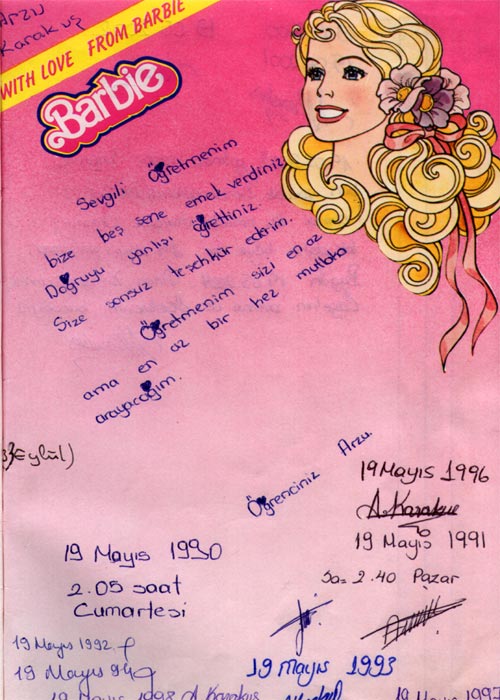 Arzu
Karakuş
WITH LOVE FROM BARBIE
Barbie
Sevgili Öğretmenim
bize beş sene emek verdiniz
Doğruyu yanlışı öğrettiniz.
Size sonsuz teşekkür ederim.
Öğretmenim sizi en az
ama en az bir kez mutlaka
arayacağım.
Eylül)
Öğrenciniz Arzu
19 Mayıs 1996
A. Karakuş
19 Mayıs 1991
Sa= 2.40 Pazar
19 Mayıs 1990
2.05 saat
Cumartesi
19 Mayıs 1992
19 Mayıs 94
19 Mayıs 1993
19 Mayıs 1998 A Karakuş
19 Mayıs